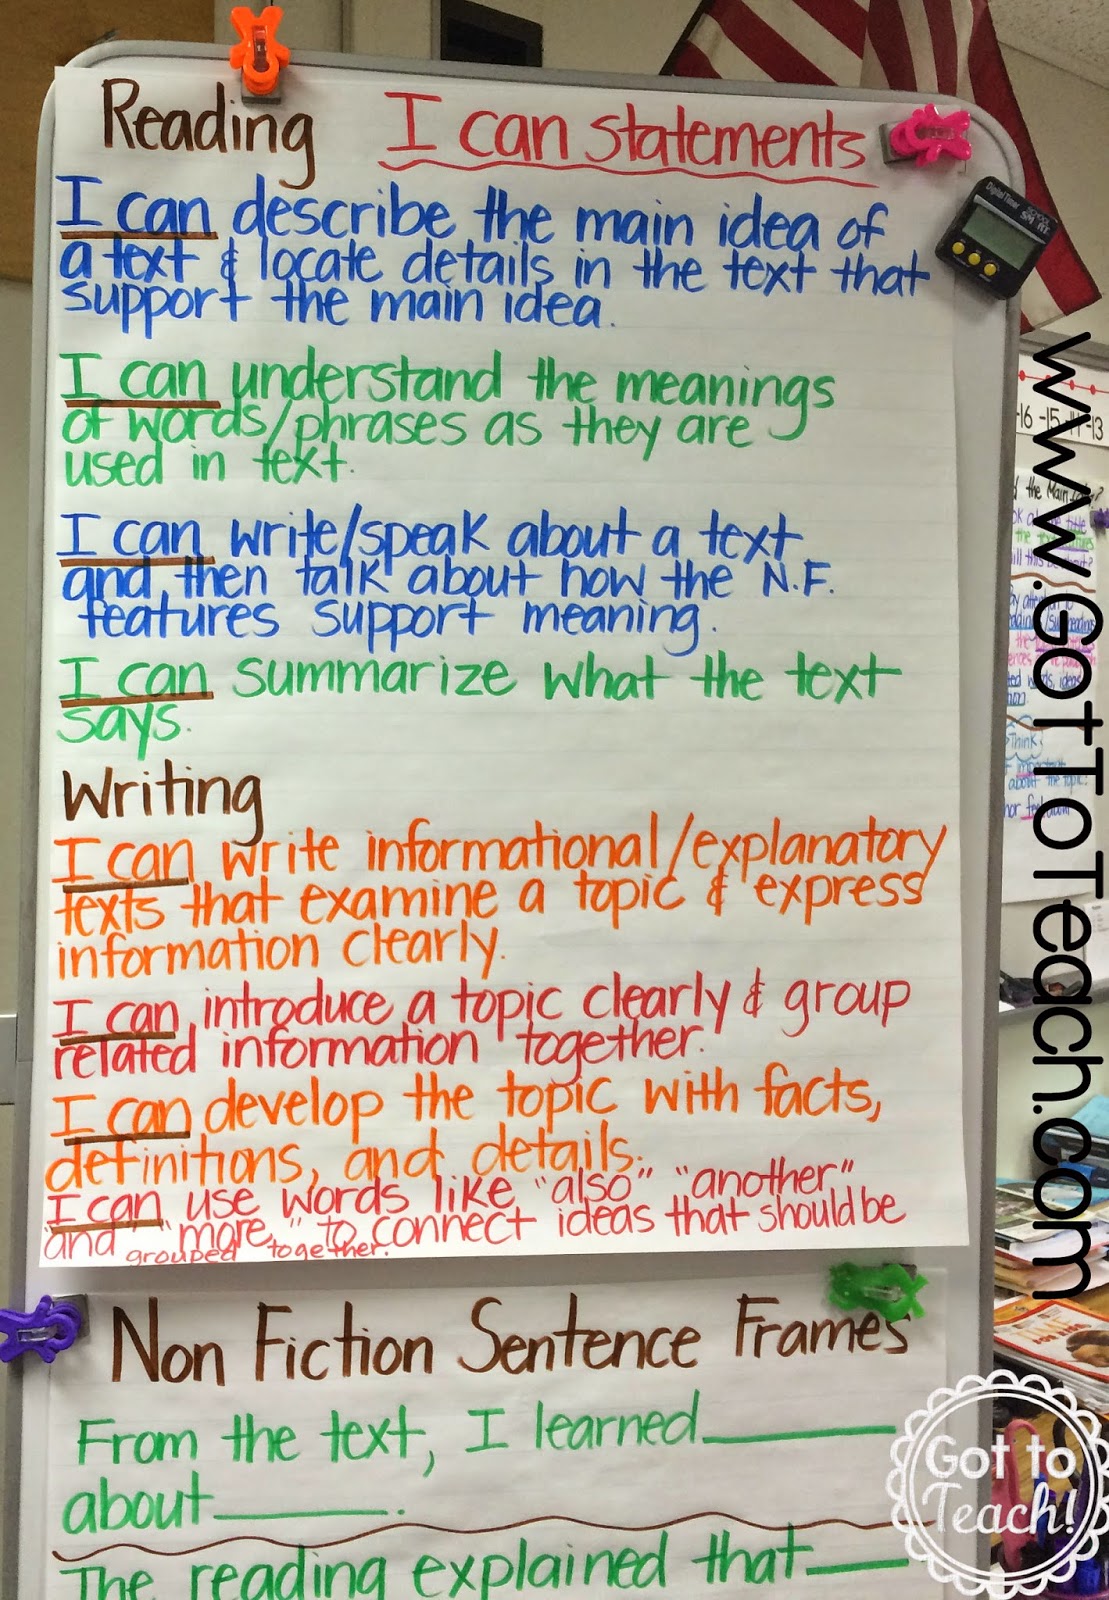 Reading I can statements
I can describe the main idea of
a text & locate details in the text that
support the main idea.
I can understand the meanings
of words/phrases as they are
used in text.
I can write/speak about a text
and then talk about how the N.F.
features support meaning.
I can summarize what the text
says.
Writing
I can write informational/explanatory
texts that examine a topic & express
information clearly.
I can introduce a topic clearly & group
related information together.
I can develop the topic with facts,
definitions, and details.
I can use words like "also" "another"
"and" "more" to connect ideas that should be
grouped together.
Non Fiction Sentence Frames
From the text, I learned
about .
The reading explained that
www.GotToTeach.com
Got to
Teach!
Digital Timer
-16 -15 -14 -13
the Main